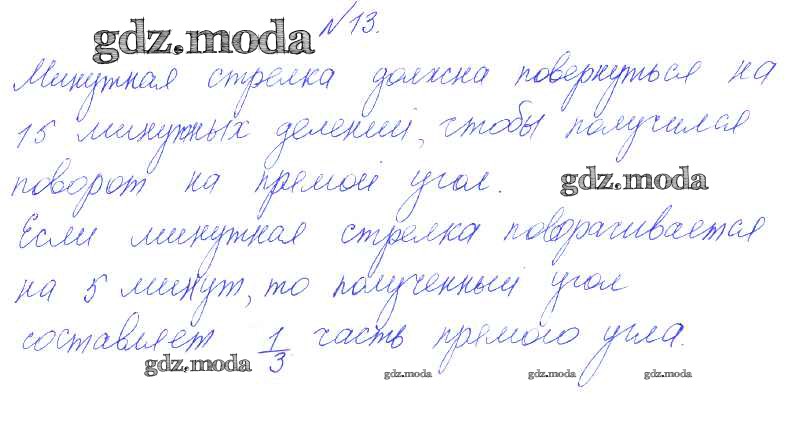 №13.
gdz.moda
Минутная стрелка должна повернуться на
15 минутных делений, чтобы получился
поворот на прямой угол.
gdz.moda
Если минутная стрелка поворачивается
на 5 минут, то полученный угол
составляет 1/3 часть прямого угла.
gdz.moda
gdz.moda
gdz.moda
gdz.moda